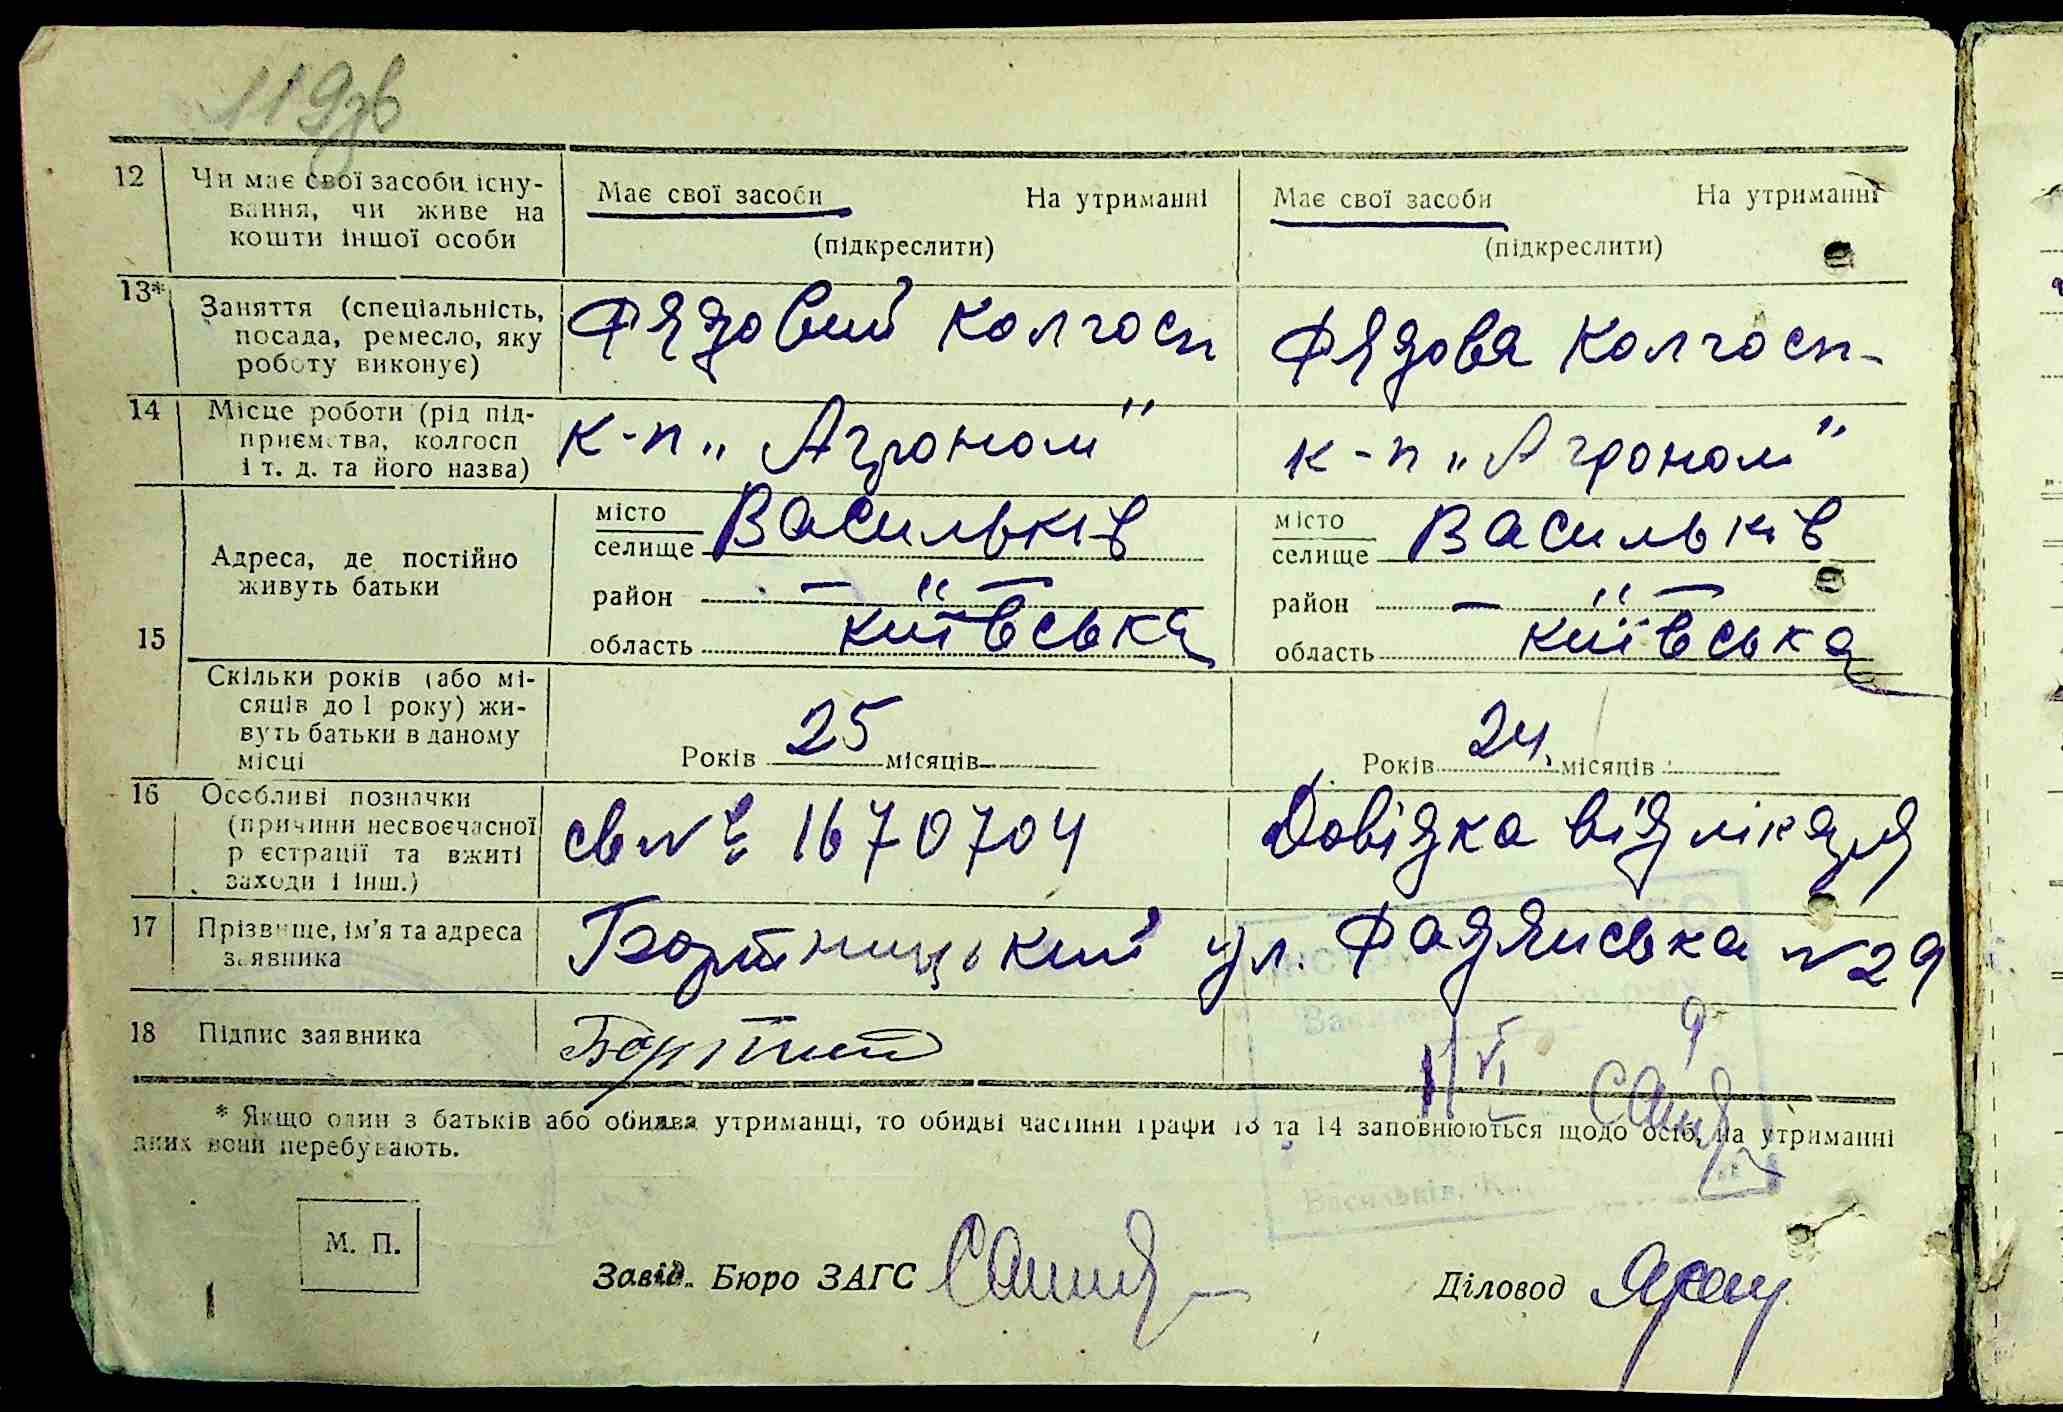 119зв
12 Чи має свої засоби існу- Має свої засоби На утриманні Має свої засоби На утриманні
вання, чи живе на
кошти іншої особи (підкреслити) (підкреслити)
13* Заняття (спеціальність, Рядовий колгосп Рядова колгосп-
посада, ремесло, яку
роботу виконує)
14 Місце роботи (рід під- к-п „Агроном" к-п „Агроном"
приємства, колгосп
і т. д. та його назва)
15 Адреса, де постійно живуть батьки
місто селище Васильків місто селище Васильків
район — " — район — " —
область київська область київська
Скільки років (або мі-
сяців до 1 року) жи-
вуть батьки в даному
місці Років 25 місяців Років 24. місяців
16 Особливі позначки св № 1670704 Довідка від лікаря
(причини несвоєчасної
реєстрації та вжиті
заходи і інш.)
17 Прізвище, ім'я та адреса Бортницький ул. Радянська №29
заявника
18 Підпис заявника
* Якщо один з батьків або обидва утриманці, то обидві частини графи 13 та 14 заповнюються щодо осіб, на утриманні
яких вони перебувають.
М. П.
Завід. Бюро ЗАГС Діловод